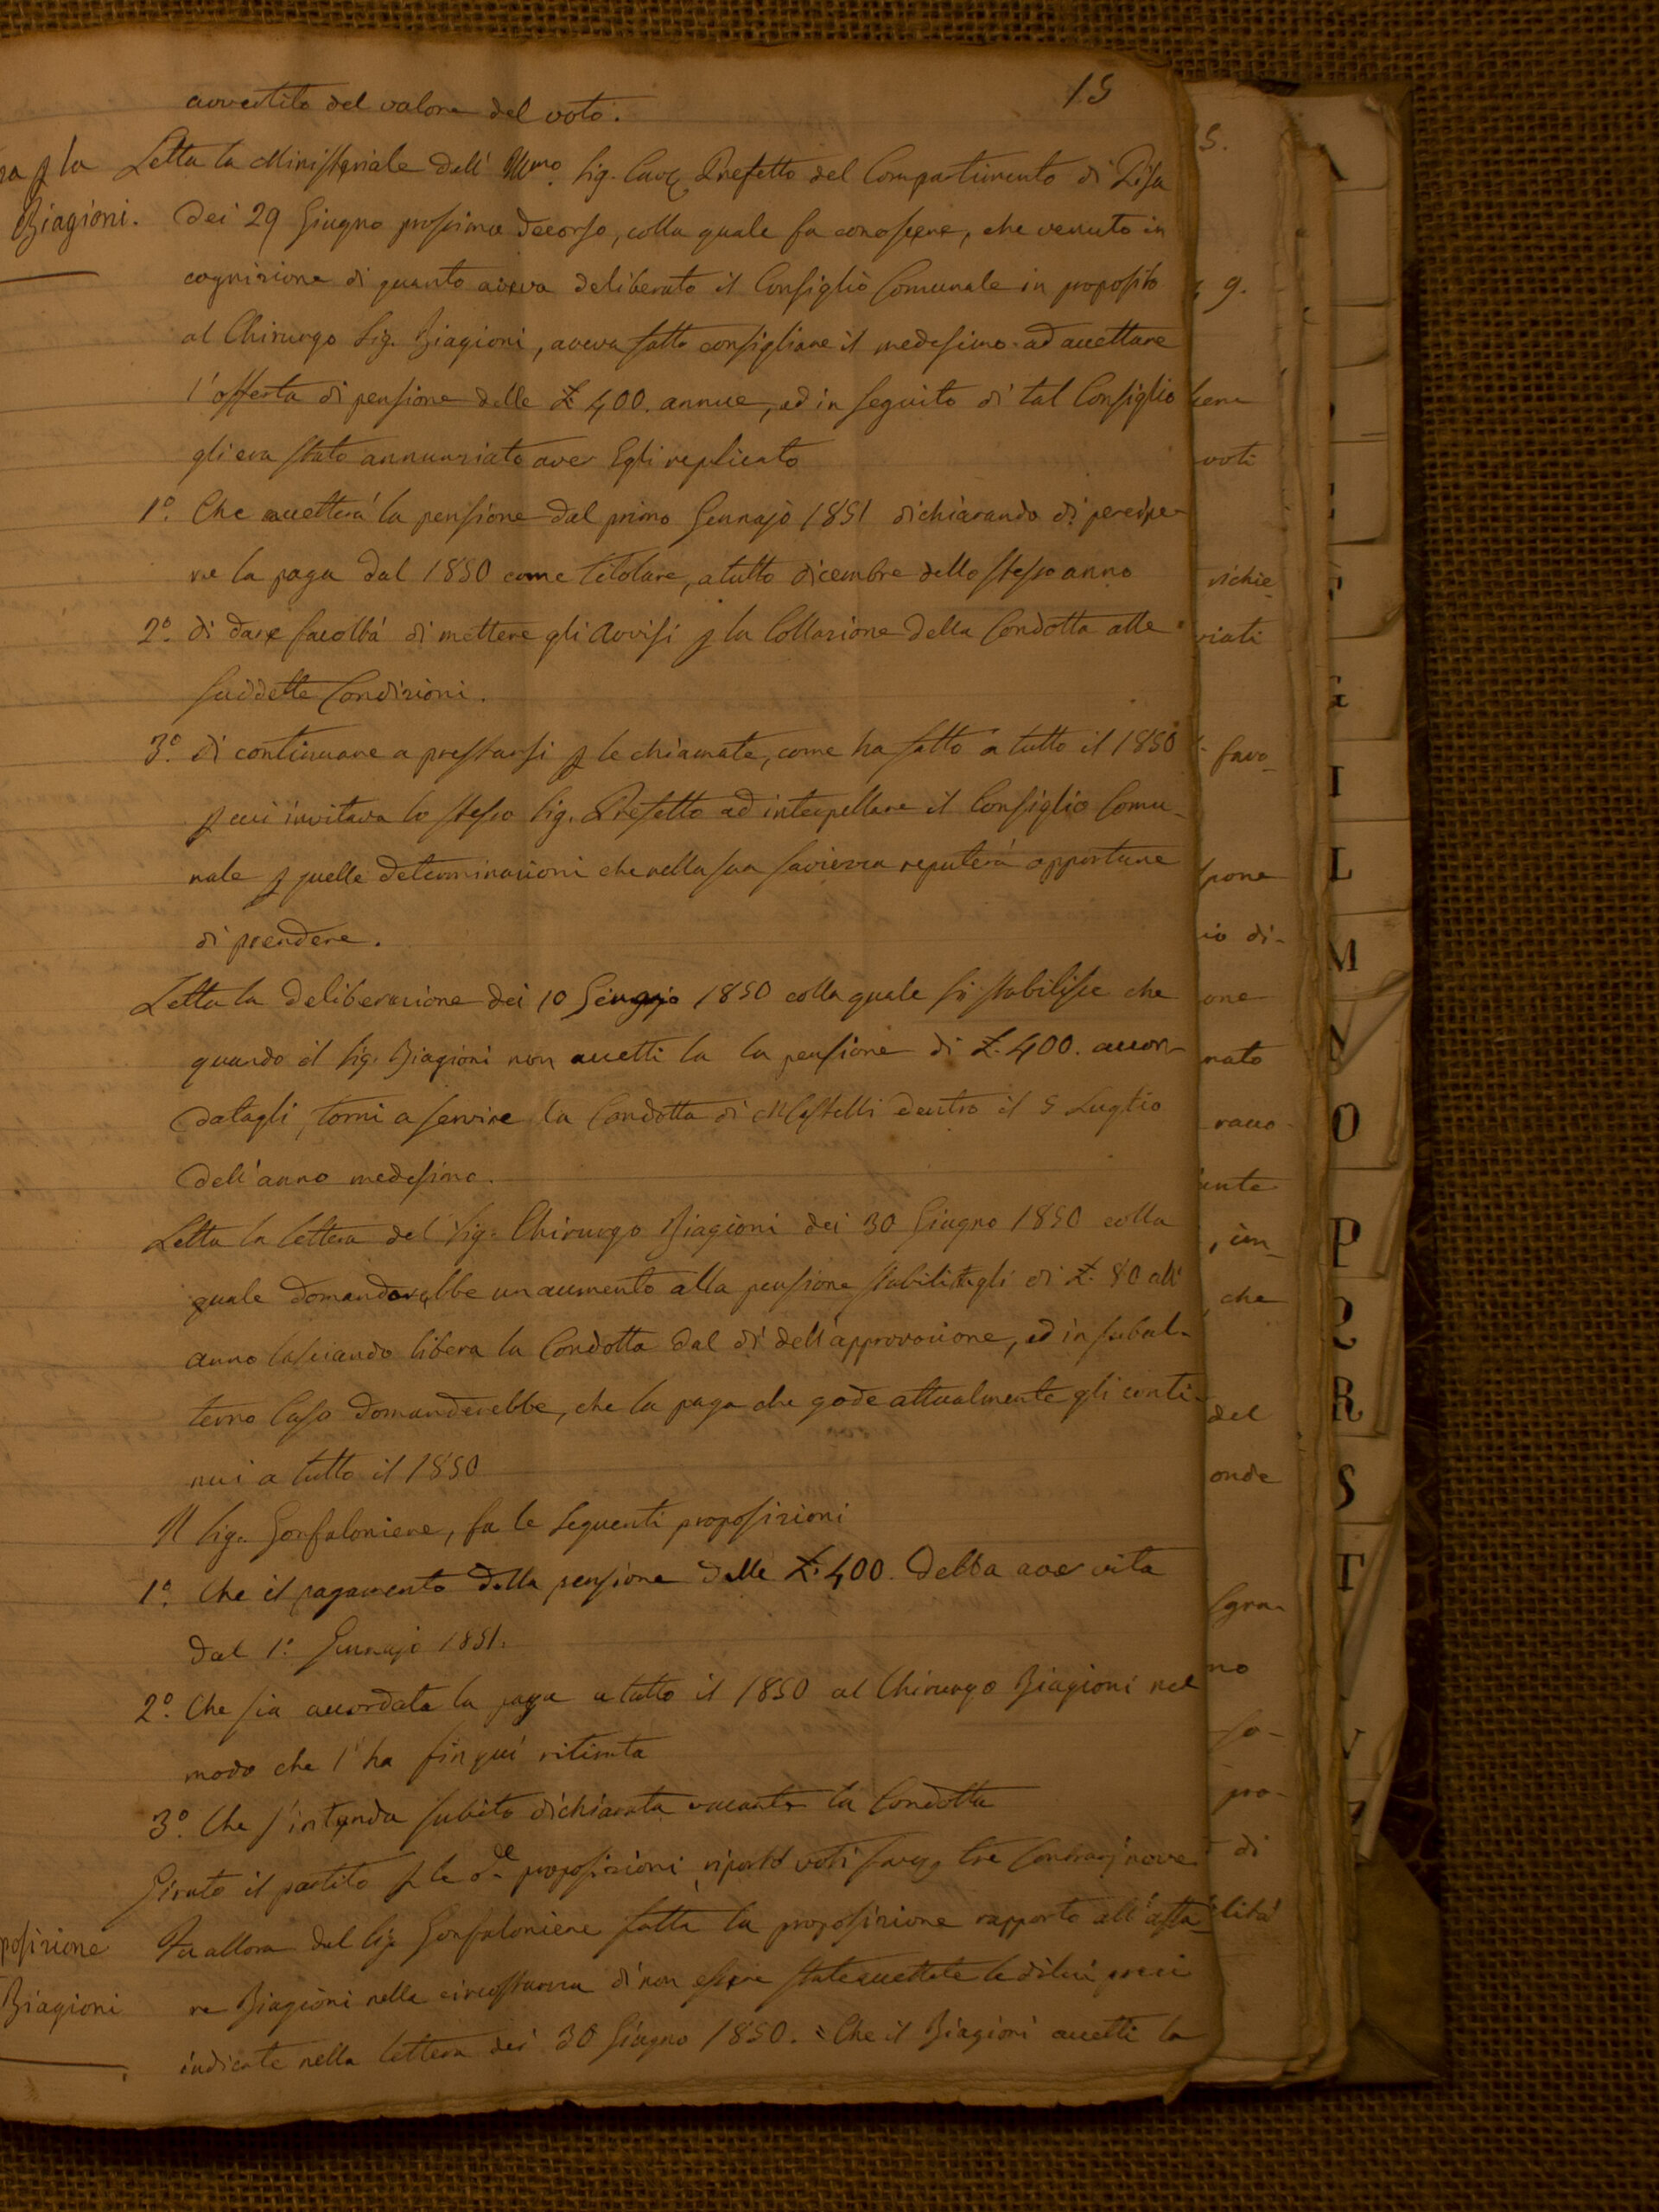 15
avvertito del valore del voto.
ra p la
Biagioni.
Letta la Ministeriale dell' Illmo. Sig. Cav. Prefetto del Compartimento di Pisa
dei 29 Giugno prossimo decorso, colla quale fa conoscere, che venuto in
cognizione di quanto aveva deliberato il Consiglio Comunale in proposito
al Chirurgo Sig. Biagioni, aveva fatto consigliare il medesimo ad accettare
l'offerta di pensione delle £ 400. annue, ed in seguito di tal Consiglio
gli era stato annunziato aver Egli replicato
1°. Che accetterá la pensione dal primo Gennajo 1851 dichiarando di percipe-
re la paga dal 1850 come titolare, a tutto dicembre dello stesso anno
2°. di dare facoltá di mettere gli Avvisi p la Collazione della Condotta alle
suddette Condizioni.
3°. di continuare a prestarsi p le chiamate, come ha fatto a tutto il 1850
p cui invitava lo stesso Sig. Prefetto ad interpellare il Consiglio Comu-
nale p quelle determinazioni che nella sua saviezza reputerá opportune
di prendere.
Letta la deliberazione dei 10 Gennajo 1850 colla quale si stabilisce che
quando il Sig. Biagioni non accetti la la pensione di £. 400. accor-
datagli, torni a servire la Condotta di Castelli dentro il 5 Luglio
dell'anno medesimo.
Letta la lettera del Sig. Chirurgo Biagioni dei 30 Giugno 1850 colla
quale domanderebbe un aumento alla pensione stabilitagli di £. 80 all'
anno lasciando libera la Condotta dal dì dell'approvazione, ed in subal-
terno Caso domanderebbe, che la paga che gode attualmente gli conti-
nui a tutto il 1850
Il Sig. Gonfaloniere, fa le seguenti proposizioni
1°. Che il pagamento della pensione delle £. 400. debba aver vita
dal 1°. Gennajo 1851.
2°. Che sia accordata la paga a tutto il 1850 al Chirurgo Biagioni nel
modo che l'ha fin quì ritirata
3°. Che s'intenda subito dichiarata vacante la Condotta
Girato il partito p le de proposizioni, riportò voti favg tre Contrarj nove
posizione
Biagioni
Fu allora dal Sig Gonfaloniere fatta la proposizione rapporto all'affa-
re Biagioni nella circostanza di non essere state accettate le di lui preci
indicate nella lettera dei 30 Giugno 1850. = Che il Biagioni accetti la
5.
9.
bene
voti
richie-
viati
favo-
pone
io di-
one
nato
rano
ente
, im-
che
del
onde
Sgra-
no
so-
pro-
di
lità
G
I
L
M
N
O
P
Q
R
S
T
V
Z